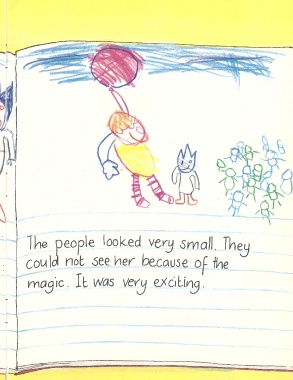 The people looked very small. They
could not see her because of the
magic. It was very exciting.